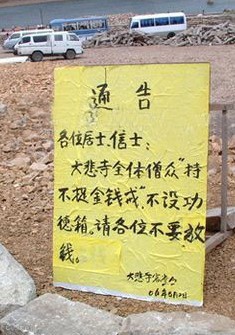 通告
各位居士、信士:
大悲寺全体僧众“持
不捉金钱戒”不设功
德箱。请各位不要放
钱。
大悲寺客堂